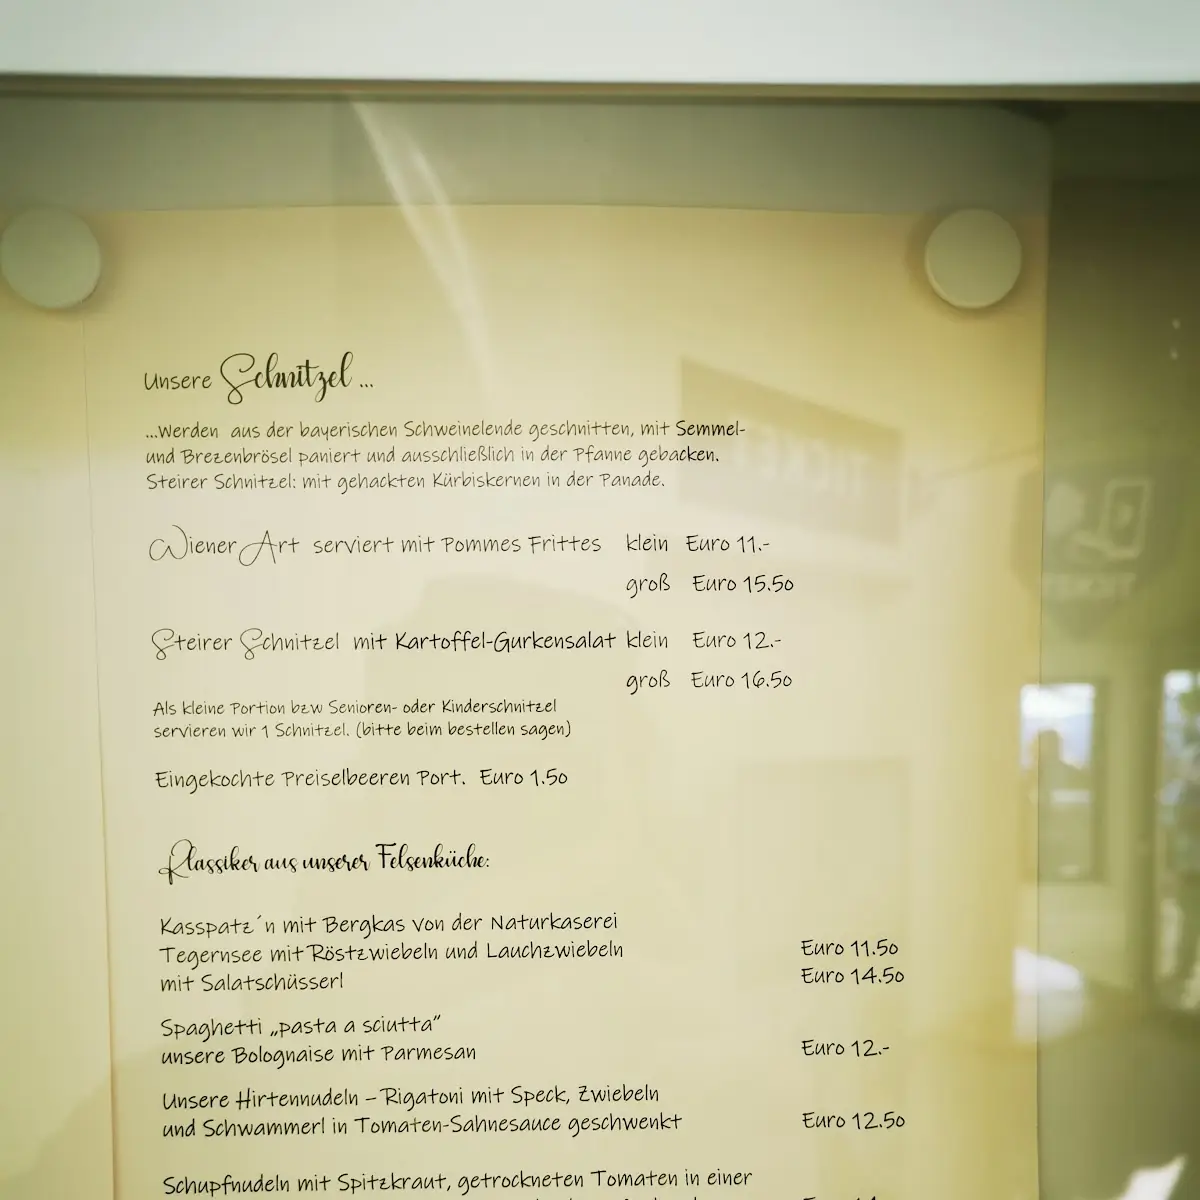 Unsere Schnitzel ...
...Werden aus der bayerischen Schweinelende geschnitten, mit Semmel-
und Brezenbrösel paniert und ausschließlich in der Pfanne gebacken.
Steirer Schnitzel: mit gehackten Kürbiskernen in der Panade.
Wiener Art serviert mit Pommes Frittes klein Euro 11.-
groß Euro 15.50
Steirer Schnitzel mit Kartoffel-Gurkensalat klein Euro 12.-
groß Euro 16.50
Als kleine Portion bzw Senioren- oder Kinderschnitzel
servieren wir 1 Schnitzel. (bitte beim bestellen sagen)
Eingekochte Preiselbeeren Port. Euro 1.50
Klassiker aus unserer Felsenküche:
Kasspatz´n mit Bergkas von der Naturkaserei
Tegernsee mit Röstzwiebeln und Lauchzwiebeln Euro 11.50
mit Salatschüsserl Euro 14.50
Spaghetti „pasta a sciutta"
unsere Bolognaise mit Parmesan Euro 12.-
Unsere Hirtennudeln – Rigatoni mit Speck, Zwiebeln
und Schwammerl in Tomaten-Sahnesauce geschwenkt Euro 12.50
Schupfnudeln mit Spitzkraut, getrockneten Tomaten in einer